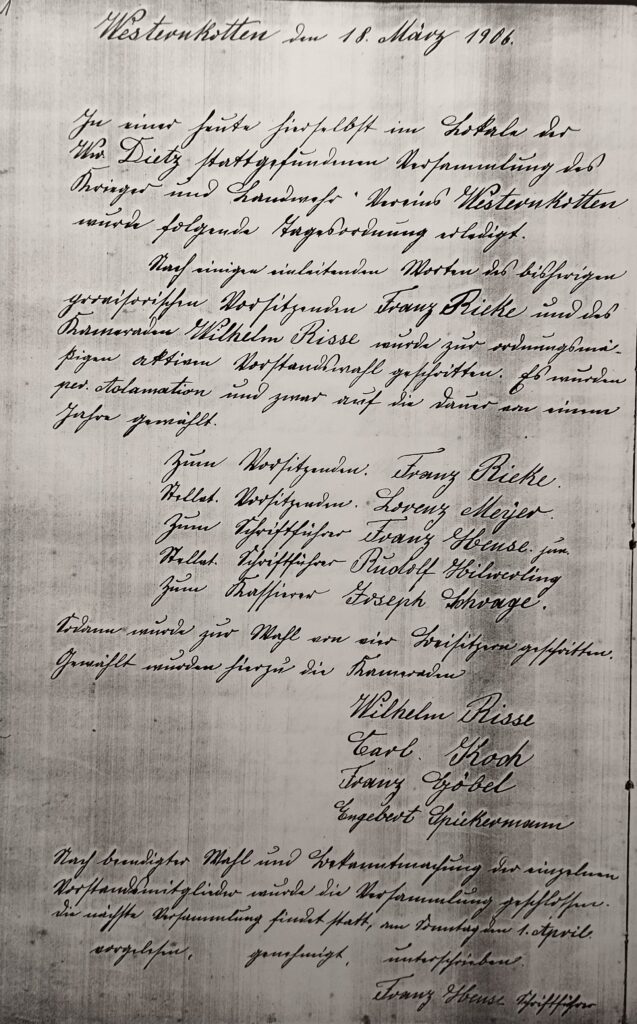 1
Westernkotten den 18. März 1906.
In einer heute hierselbst im Lokale der
Ww. Dietz stattgefundenen Versammlung des
Krieger und Landwehr Vereins Westernkotten
wurde folgende Tagesordnung erledigt.
Nach einigen einleitenden Worten des bisherigen
provisorischen Vorsitzenden Franz Rieke und des
Kameraden Wilhelm Risse wurde zur ordnungsmä-
ßigen aktiven Vorstandswahl geschritten. Es wurden
per. Aclamation und zwar auf die Dauer von einem
Jahre gewählt.
Zum Vorsitzenden. Franz Rieke.
Stellvt. Vorsitzenden. Lorenz Meyer.
Zum Schriftführer Franz Hense jun.
Stellvt. Schriftführer Rudolf Hilwerling
Zum Kassierer Joseph Schrage.
Sodann wurde zur Wahl von vier Beisitzern geschritten.
Gewählt wurden hierzu die Kameraden
Wilhelm Risse
Carl. Koch
Franz Göbel
Engebert Spiekermann
Nach beendigter Wahl und Bekanntmachung der einzelnen
Vorstandsmitglieder wurde die Versammlung geschlossen.
Die nächste Versammlung findet statt, am Sonntag den 1. April.
vorgelesen, genehmigt, unterschrieben.
Franz Hense Schriftführer